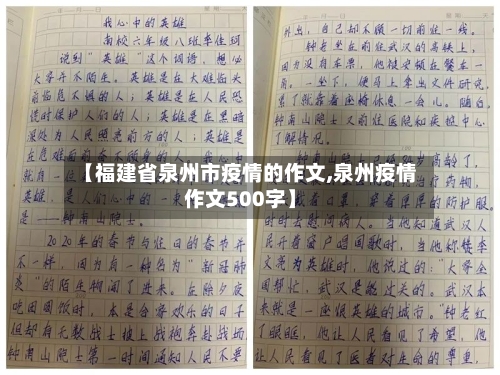 我心中的英雄
南校六年级八班李佳
说到“英雄”这个词语，想必
大家并不陌生。英雄是在大难临头
前临危不惧的人；英雄是在人民恐
慌时保护人们的人；英雄是在黑暗
深处为人民照亮前方的人；英雄是
是——钟南山院士。
2020年的春节与往日的春节并
不一样，因为有一种名为“新冠肺
炎”的陌生物闯了进来。在除夕夜
吃团圆饭时，本是合家欢乐的日子
但却有无数战士披上战袍奔赴战场
钟南山院士第一时间通知人民不要
外出，自己却不顾一切前往一线。
钟老坐在前往武汉的高铁上，
因为没有车票，他被安顿在餐车一
角。一坐下，便马上拿出文件研究，
累了就靠着座椅休息一会儿。随后，
钟南山院士又前往医院和疾控中心
了解情况。
【福建省泉州市疫情的作文,泉州疫情
作文500字】
时时去慰问病人。当他知道武汉人
民开着窗户唱国歌时，当他称赞李
文亮为英雄时，他说过的：“大家全
国帮忙，武汉是能过关的。武汉本
来就是一座很英雄的城市。”钟老红
了眼眶，他让人民看见了希望，他
让人民看见了医者对生命的尊重，